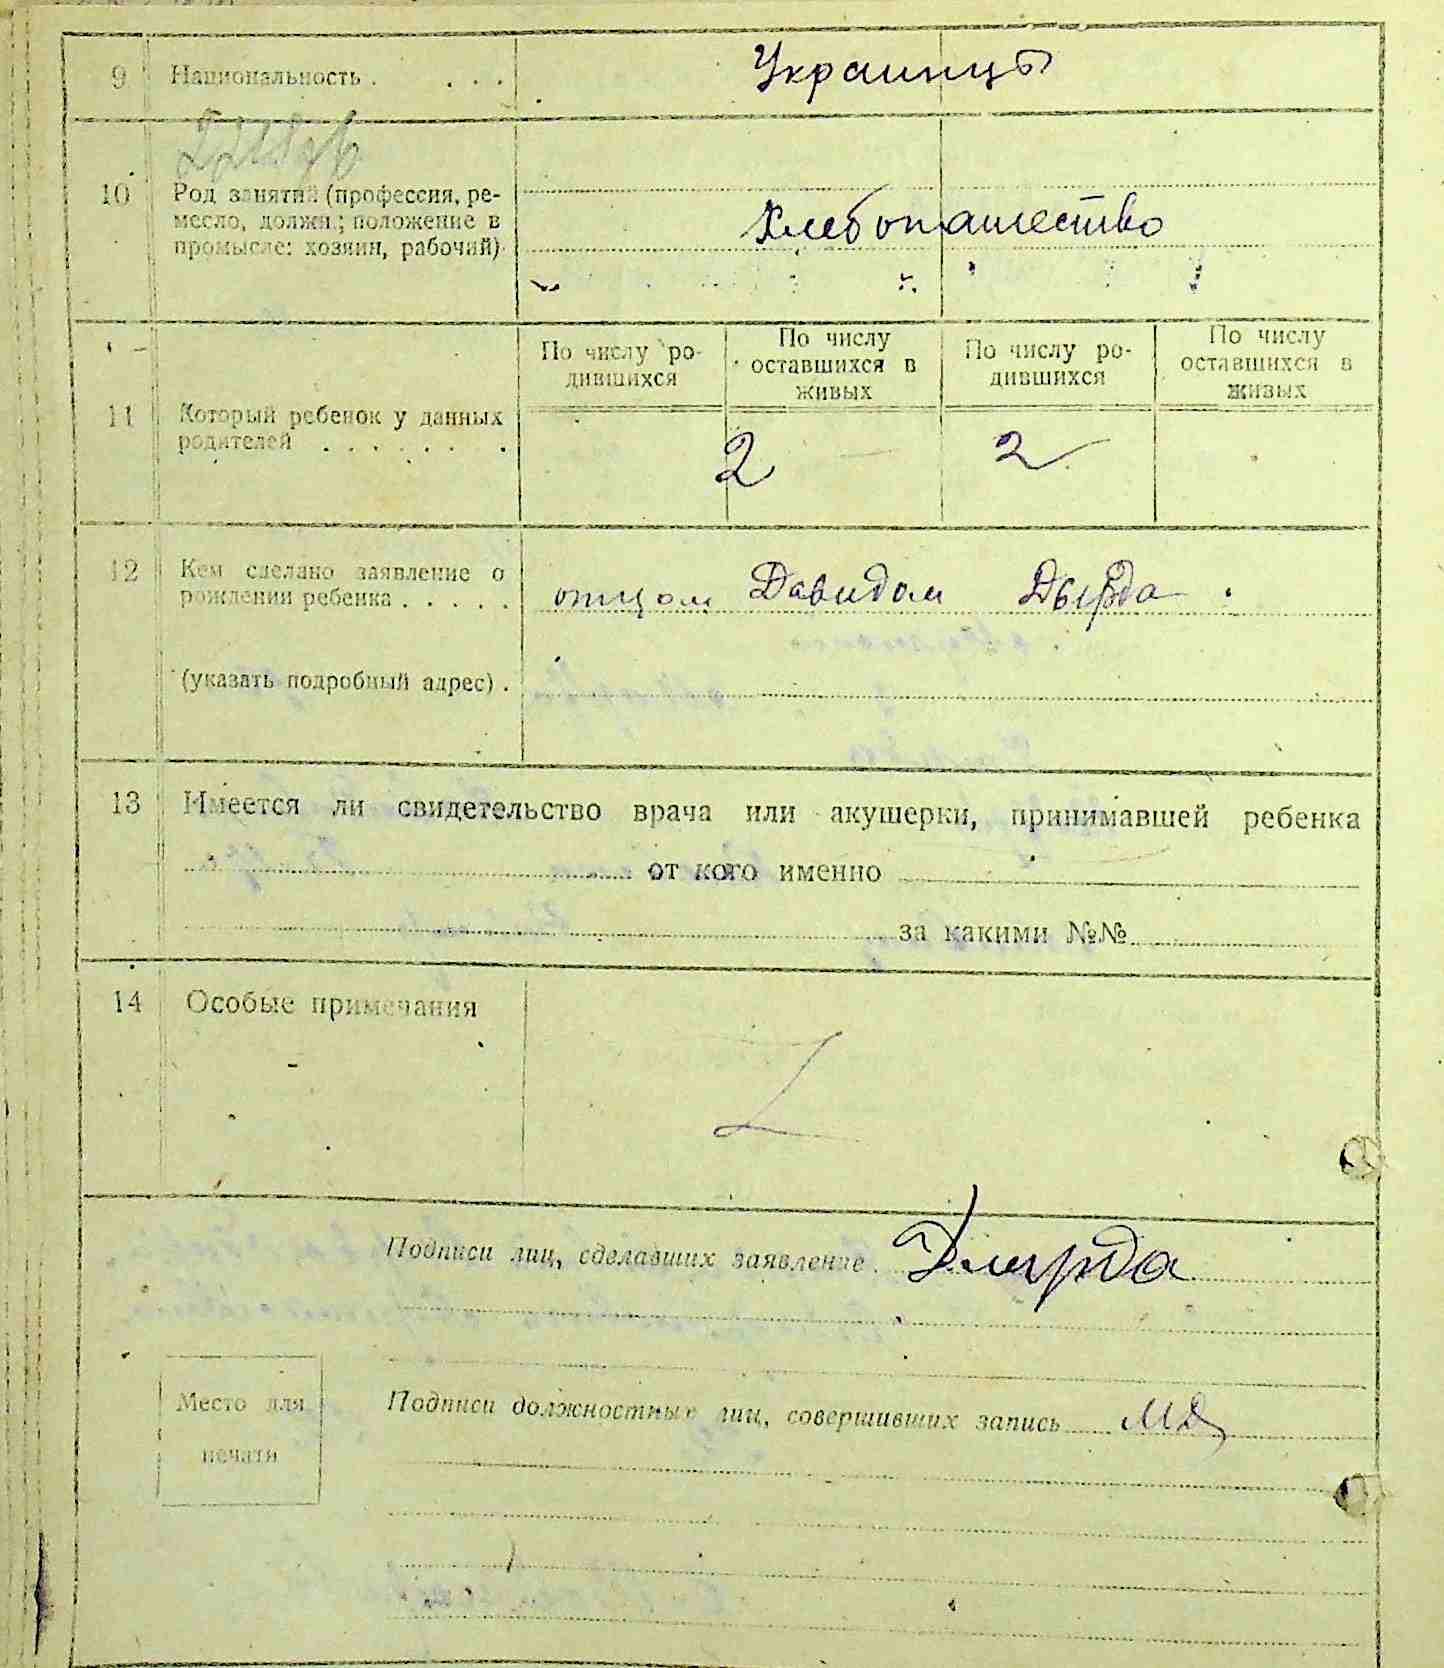 9 Национальность . . . . Украинцы
10 Род занятий (профессия, ре-
месло, должн.; положение в
промысле: хозяин, рабочий)
Хлебопашество
11 Который ребенок у данных
родителей . . . . . . .
По числу ро-
дившихся
По числу
оставшихся в
живых
По числу ро-
дившихся
По числу
оставшихся в
живых
2 2
12 Кем сделано заявление о
рождении ребенка . . . . .
отцом Давидом Дырда
(указать подробный адрес) .
13 Имеется ли свидетельство врача или акушерки, принимавшей ребенка
от кого именно
за какими №№
14 Особые примечания
Подписи лиц, сделавших заявление Дырда
Место для
печати
Подписи должностных лиц, совершивших запись